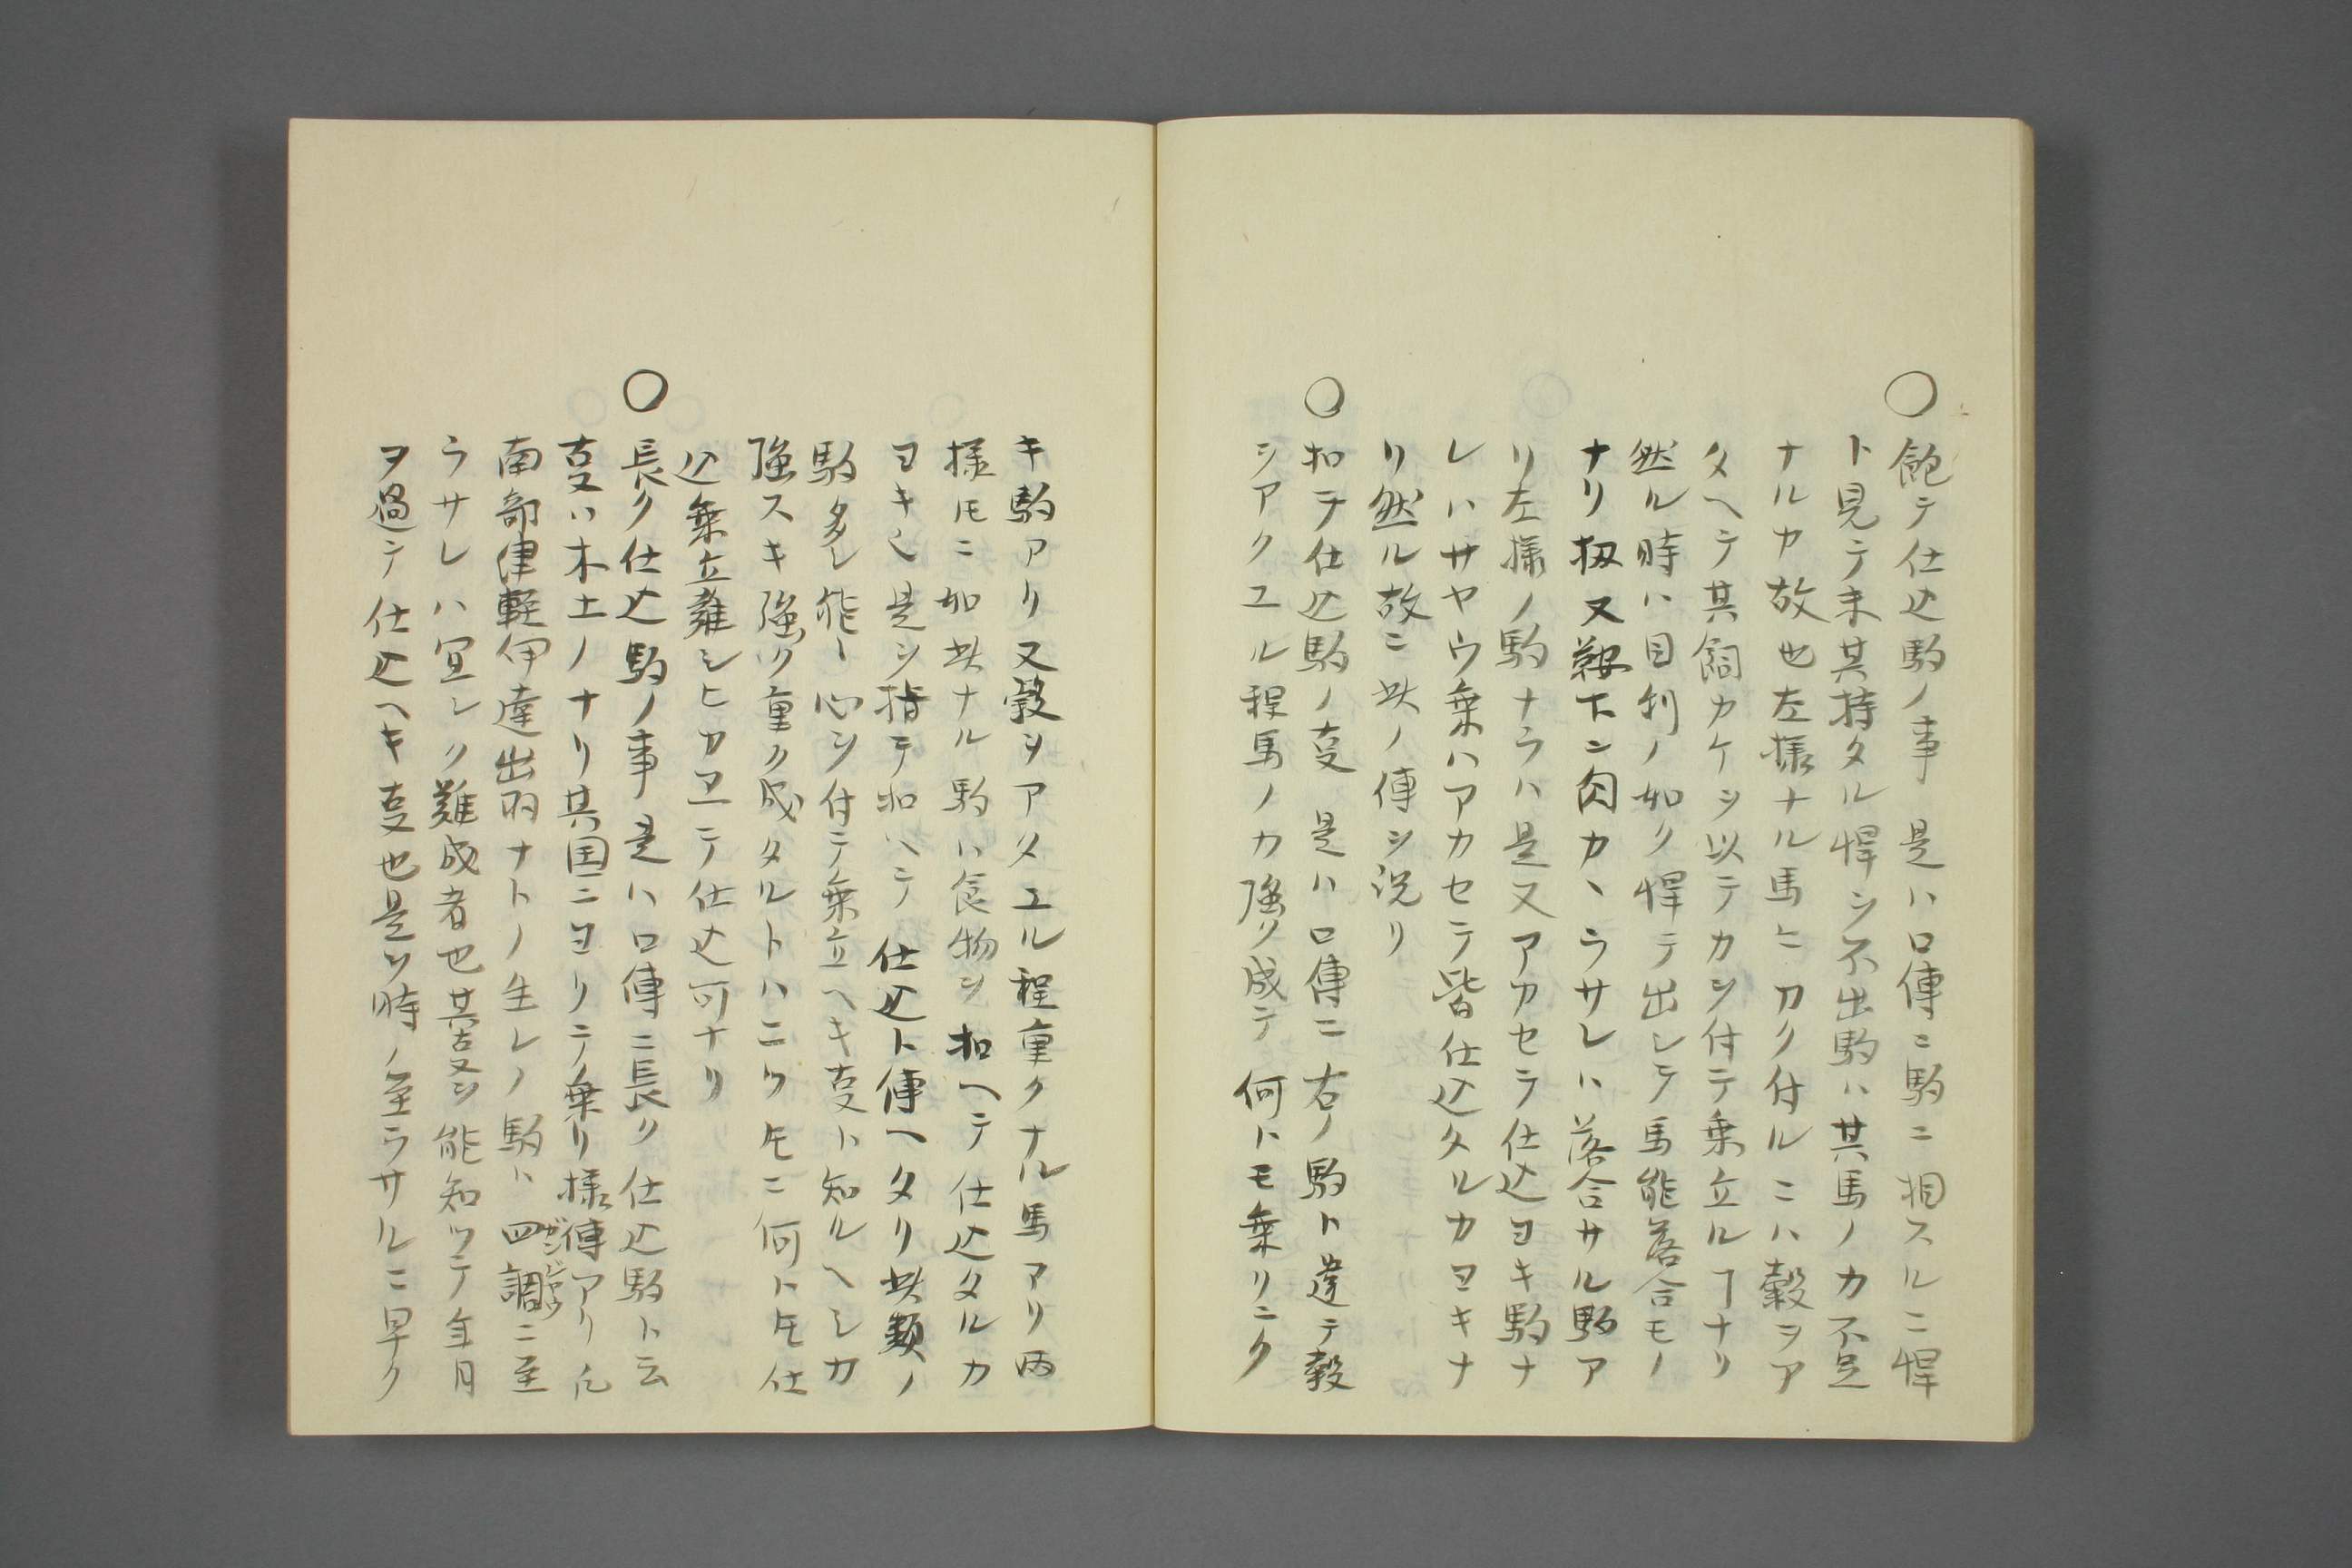 ○飽テ仕込駒ノ事 是ハ口傳ニ駒ニ相スルニ悍
ト見テ未其持タル悍ヲ不出駒ハ其馬ノ力不足
ナルカ故也左様ナル馬ニ力ク付ルニハ穀ヲア
タヘテ其飼カケヲ以テカヲ付テ乗立ルヿナリ
然ル時ハ目利ノ如ク悍テ出レテ馬能落合モノ
ナリ扨又鞍下ニ肉カヽラサレハ落合サル駒ア
リ左様ノ駒ナラハ是又アカセラ仕込ヨキ駒ナ
レハサヤウ乗ハアカセラ皆仕込タルカヨキナ
リ然ル故ニ此ノ傳ヲ説リ
○扣テ仕込駒ノ叓 是ハ口傳ニ右ノ駒ト違テ穀
ヲアクユル程馬ノ力強ク成テ何トモ乗リニク
キ駒アリ又穀ヲアタユル程重クナル馬アリ両
様𪜈ニ如此ナル駒ハ食物ヲ扣ヘテ仕込タルカ
ヨキ也是ヲ指テ扣ヘテ仕込ト傳ヘタリ此類ノ
駒多シ能〻心ヲ付テ乗立ヘキ叓ト知ルヘシカ
強スキ強ク重ク成タルトハニツ𪜈ニ何ト𪜈仕
込乗立難シヒカヱテ仕込可ナリ
○長ク仕込駒ノ事 是ハ口傳ニ長ク仕込駒ト云
叓ハ木土ノナリ其国ニヨリテ乗リ様傳アリ凡
南部津軽伊達出羽ナトノ生レノ駒ハ四調ニ至
ラサレハ宜シク難成者也其叓ヲ能知ツテ年月
ヲ過テ仕込ヘキ叓也是ヲ時ノ至ラサルニ早ク